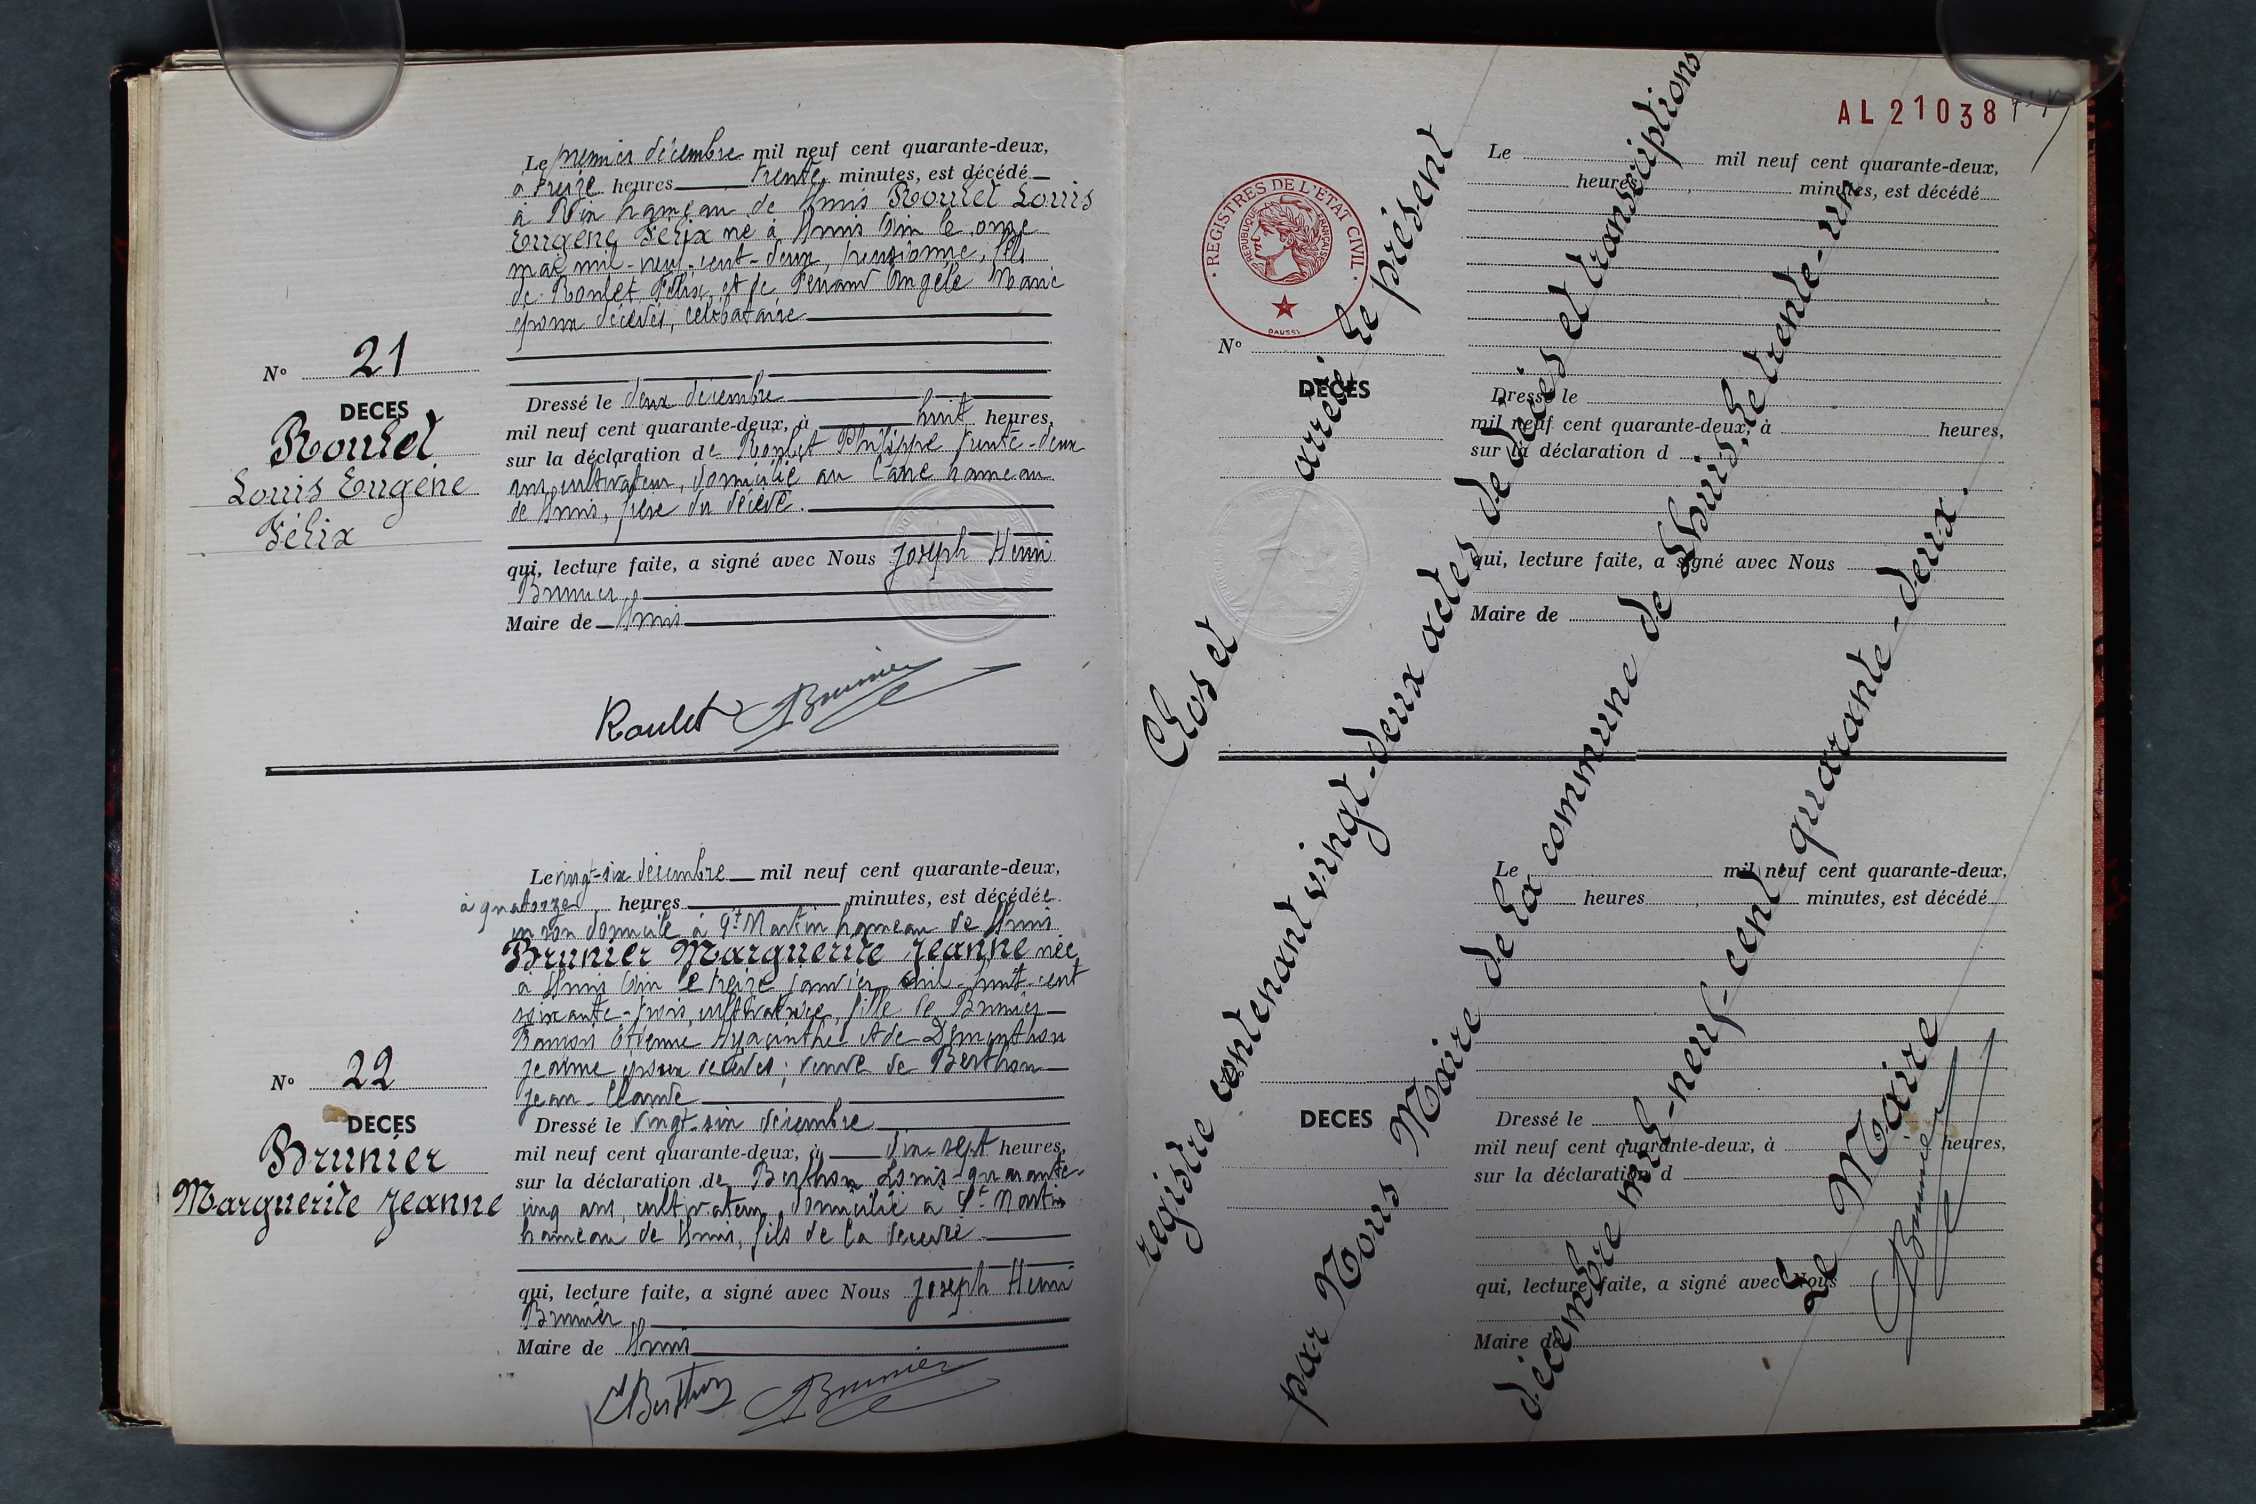 Le premier décembre mil neuf cent quarante-deux,
à treize heures trente minutes, est décédé
à hameau de Roulet Louis
Eugène Félix né à Ain le onze
mai mil-neuf-cent-deux, pensionné, fils
de Roulet Félix et de Ferrand Angèle Marie
époux décédés, célibataire
N° 21
DECES
Roulet
Louis Eugène
Félix
Dressé le deux décembre
mil neuf cent quarante-deux, à huit heures,
sur la déclaration de Roulet Philippe trente-deux
ans, cultivateur, domicilié au hameau
de frère du décédé.
qui, lecture faite, a signé avec Nous Joseph Henri
Brunier
Maire de
Roulet Brunier
Le vingt-six décembre mil neuf cent quarante-deux,
à quatorze heures minutes, est décédée
en son domicile à St Martin hameau de
Brunier Marguerite Jeanne née
à Ain le treize janvier mil-huit-cent
soixante-trois, cultivatrice, fille de Brunier
Etienne Hyacinthe et de Dementhon
Jeanne époux décédés; veuve de Berthon
Jean-Claude
N° 22
DECES
Brunier
Marguerite Jeanne
Dressé le vingt-six décembre
mil neuf cent quarante-deux, à dix-sept heures,
sur la déclaration de Berthon Louis quarante-
cinq ans, cultivateur, domicilié à St Martin
hameau de fils de la décédée
qui, lecture faite, a signé avec Nous Joseph Henri
Brunier
Maire de
Berthon Brunier
AL 21038
REGISTRES DE L'ETAT CIVIL
REPUBLIQUE FRANÇAISE
DAUSSY
Le mil neuf cent quarante-deux,
heures minutes, est décédé
N°
DECES
Dressé le
mil neuf cent quarante-deux, à heures,
sur la déclaration d
qui, lecture faite, a signé avec Nous
Maire de
Le mil neuf cent quarante-deux,
heures minutes, est décédé
DECES
Dressé le
mil neuf cent quarante-deux, à heures,
sur la déclaration d
qui, lecture faite, a signé avec Nous
Maire de
Clos et arrêté le présent
registre contenant vingt-deux actes de décès et transcriptions
par Nous Maire de la commune de le trente-un
décembre mil-neuf-cent quarante-deux.
Le Maire
Brunier